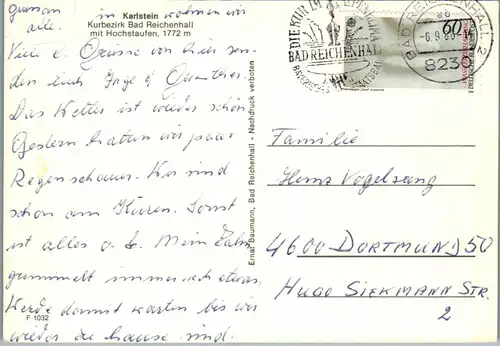 Karlstein
Kurbezirk Bad Reichenhall
mit Hochstaufen, 1772 m
in wohnen wir
alle.
Viele l. Grüsse von hier sen-
den Euch Inge & Günther.
Das Wetter ist wieder schön
Gestern hatten wir paar
Regenschauer. Wir sind
schon am Kuren. Sonst
ist alles o. k. Mein Zahn
grummelt immer noch etwas.
Werde damit warten bis wir
wieder zu hause sind.
F 1032
Ernst Baumann, Bad Reichenhall - Nachdruck verboten
DIE KUR IM
BAD REICHENHALL
BAYERISCHES
BAD REICHENHALL 2
-6.9.
8230
60
Familie
Heinz Vogelsang
4600 DORTMUND 50
HUGO SIEKMANN STR.
2